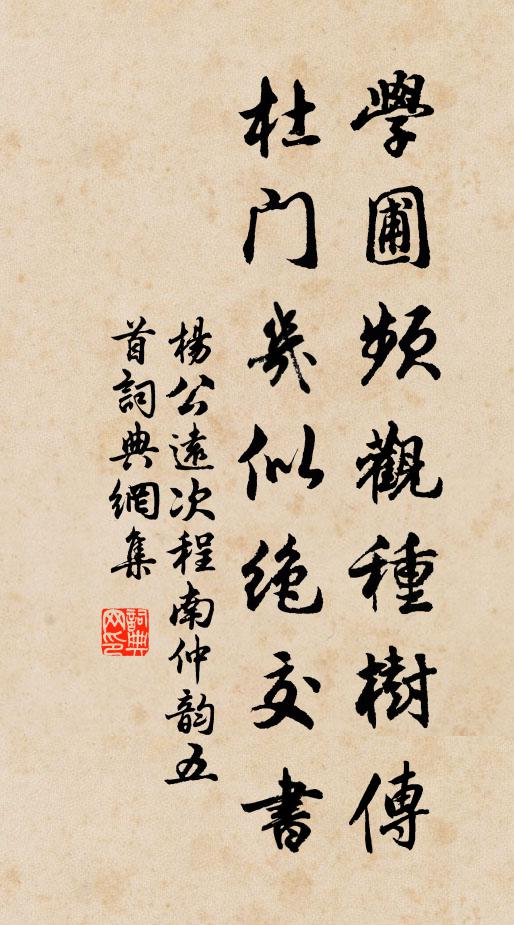 學圃頻觀種樹傳
杜門幾似絕交書
楊公遠次程南仲韵五
首詞典網集
詞典網印